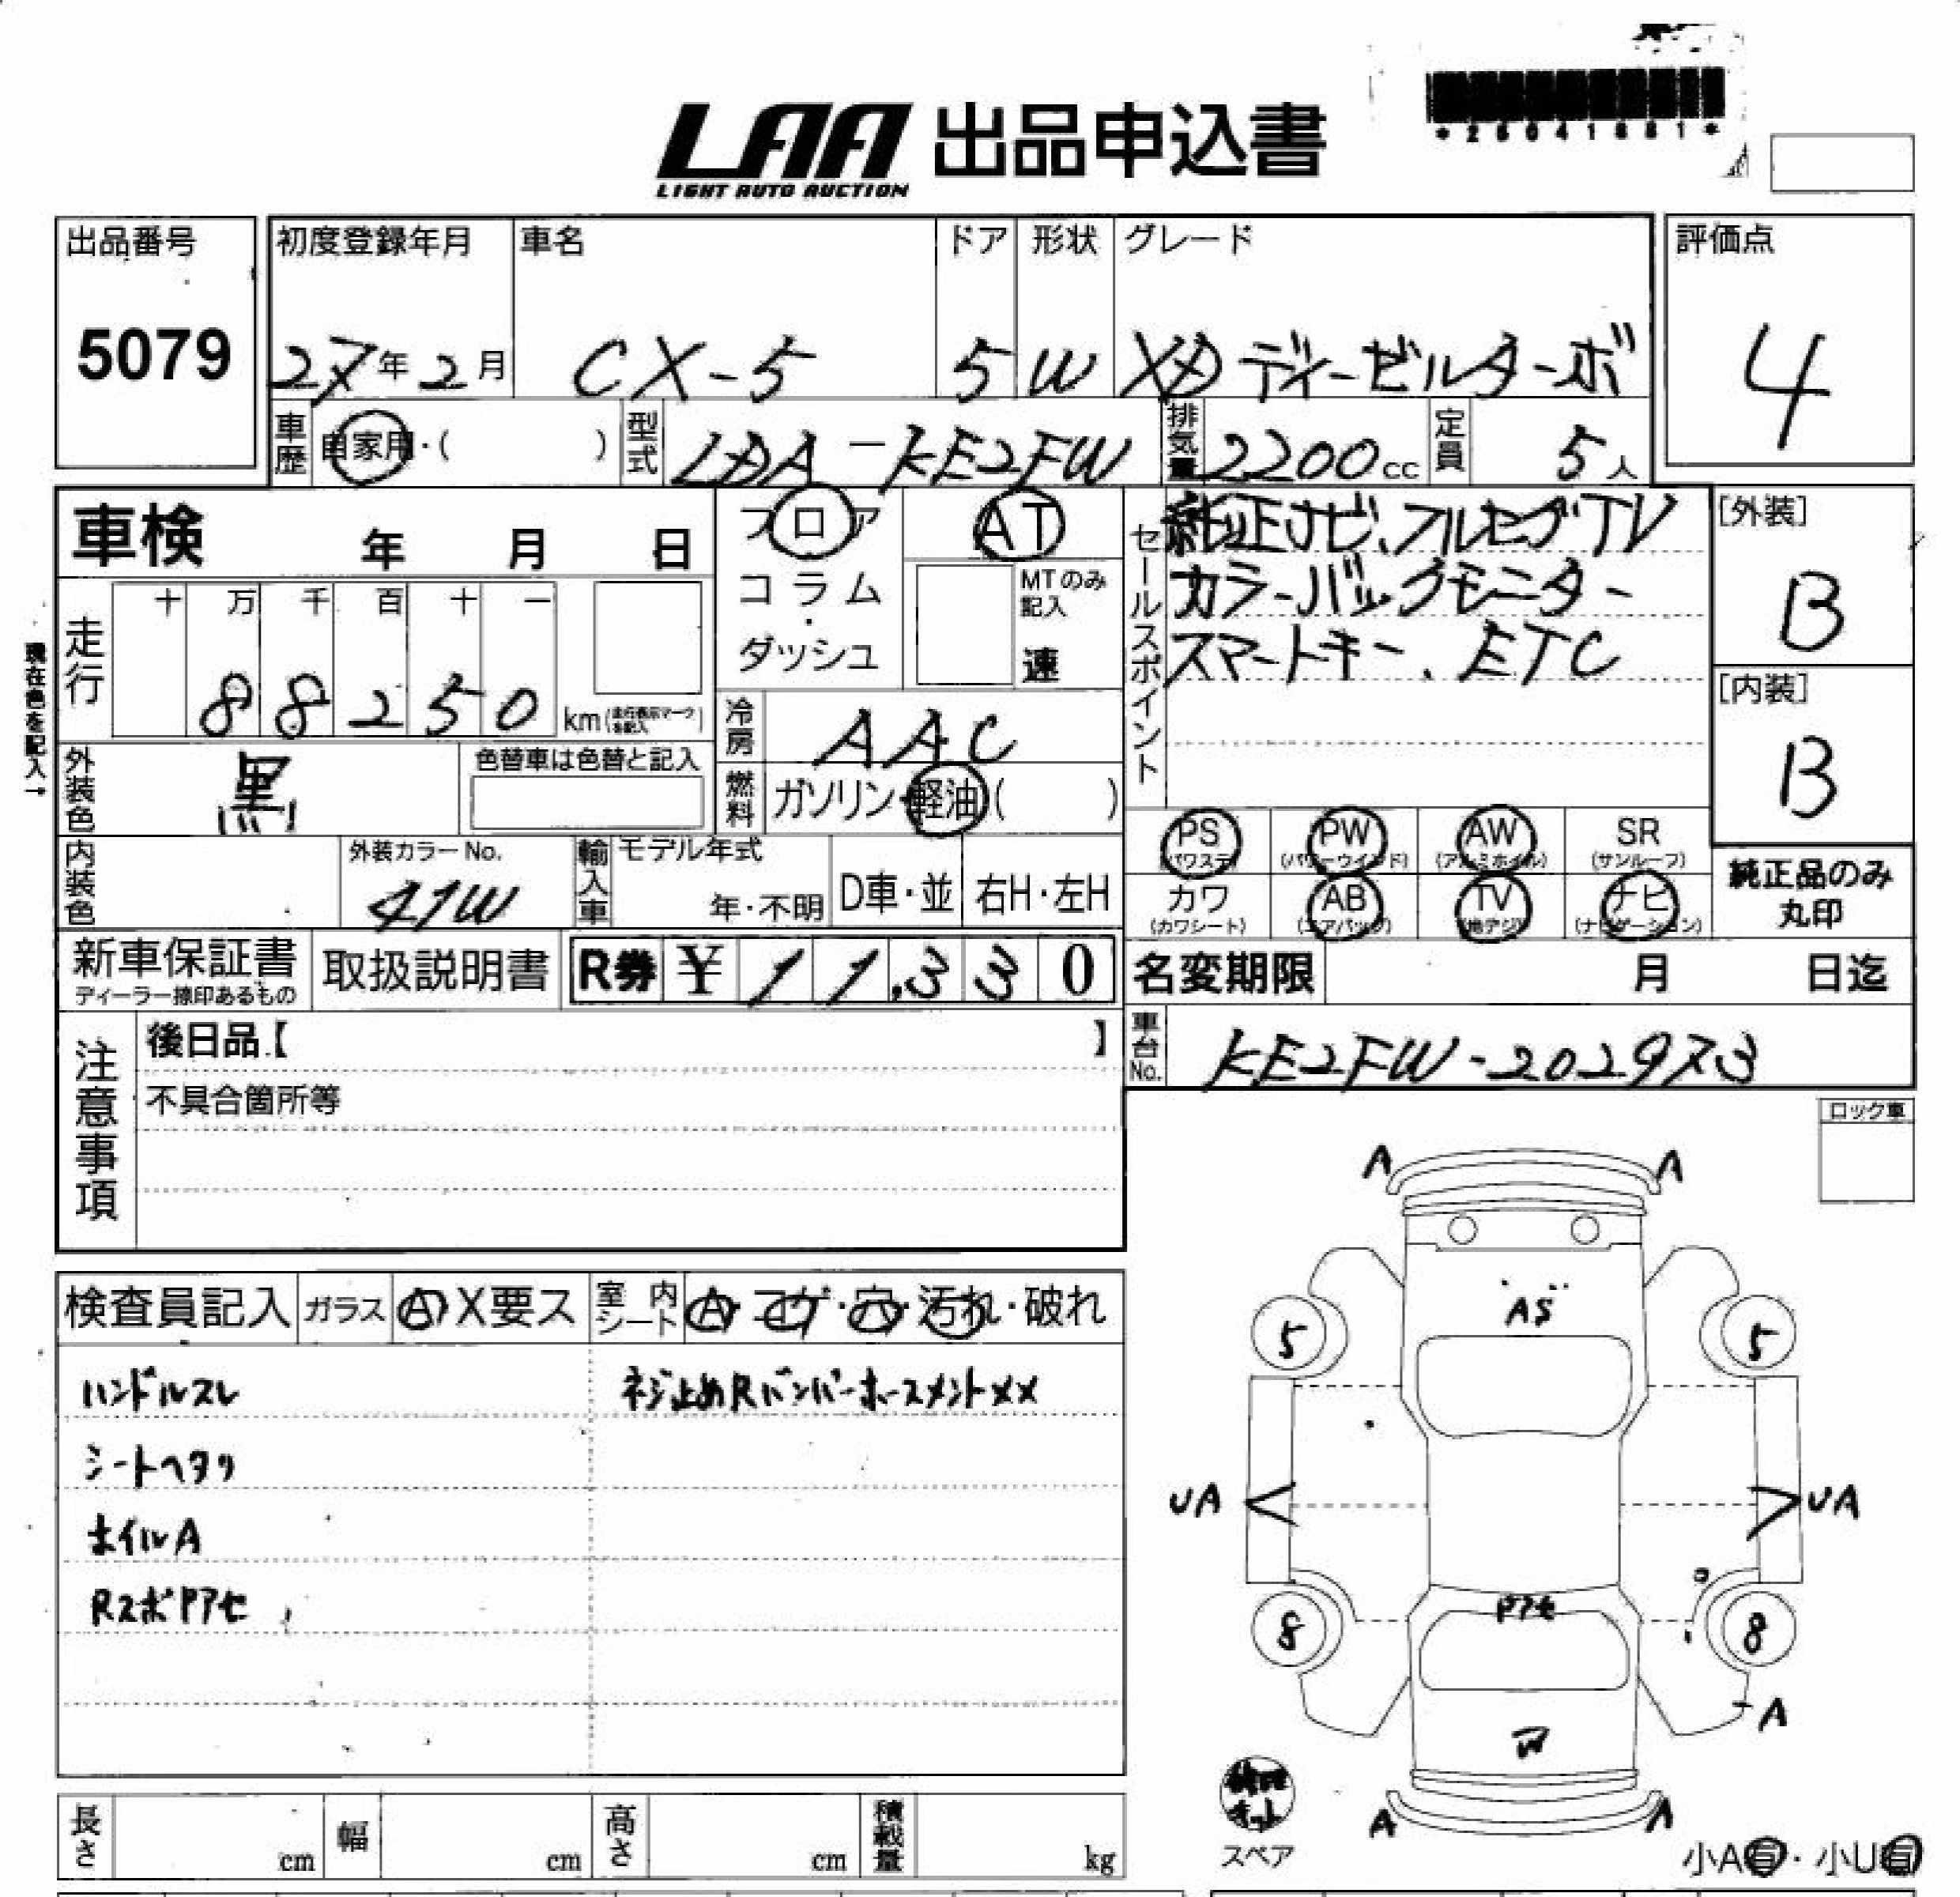 *26041881*
LAA 出品申込書
LIGHT AUTO AUCTION
出品番号 初度登録年月 車名 ドア 形状 グレード 評価点
5079 27年2月 CX-5 5 W XD ディーゼルターボ 4
車歴 自家用・( ) 型式 LDA-KE2FW 排気量 2200cc 定員 5人
車検 年 月 日
フロア
コラム
・
ダッシュ
AT
MTのみ記入
速
セールスポイント
純正ナビ、フルセグTV
カラーバックモニター
スマートキー、ETC
[外装]
B
[内装]
B
現在色を記入→
走行 十 万 千 百 十 一
88250 km(走行表示マークを記入)
冷房 AAC
外装色 黒 色替車は色替と記入
燃料 ガソリン・軽油( )
PS (パワステ) PW (パワーウインド) AW (アルミホイル) SR (サンルーフ)
カワ (カワシート) AB (エアバッグ) TV (地デジ) ナビ (ナビゲーション)
純正品のみ
丸印
内装色 外装カラーNo. 41W 輸入車 モデル年式 年・不明 D車・並 右H・左H
新車保証書 ディーラー捺印あるもの 取扱説明書 R券 ¥ 11,330
名変期限 月 日迄
車台No. KE2FW-2029773
注意事項
後日品【 】
不具合箇所等
ロック車
検査員記入 ガラス A・X要ス 室内シート A・コゲ・穴・汚れ・破れ
ハンドルスレ ネジ止めRバンパーホースメントXX
シートヘタリ
ホイルA
RスポPアセ
A A
AS
5 5
UA UA
Pアセ
8 8
A
W
A A
スペア
小A有・小U有
長さ cm 幅 cm 高さ cm 積載量 kg